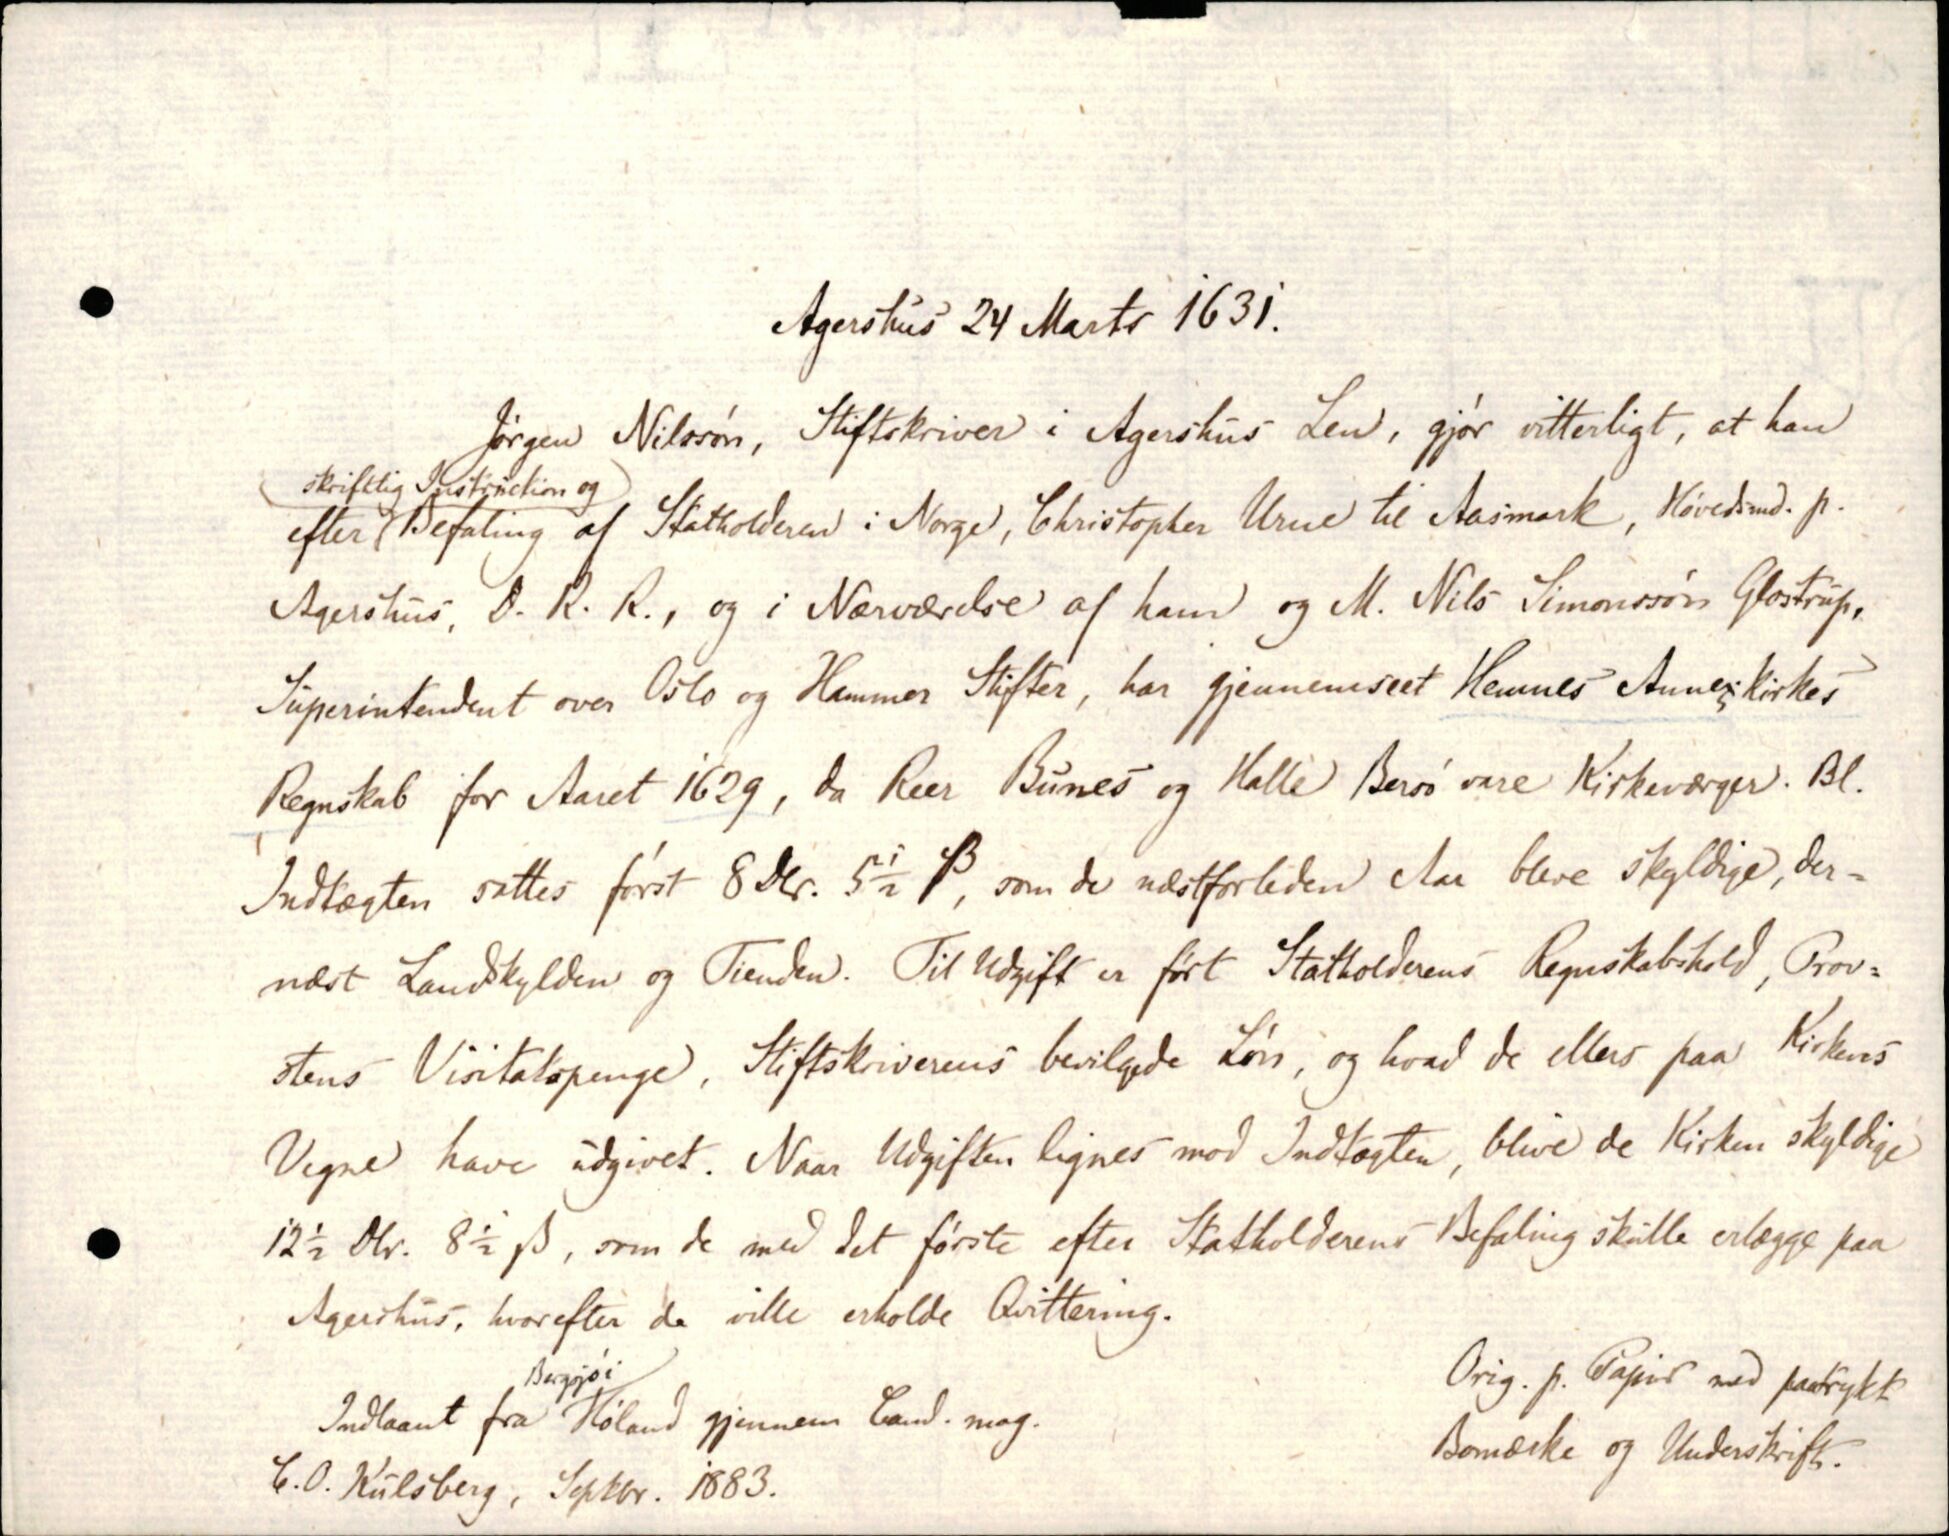 Agershus 24 Marts 1631.
Jørgen Nilssøn, Stiftskriver i Agershus Len, gjør vitterligt, at han
skriftlig Instruction og
efter Befaling af Statholderen i Norge, Christopher Urne til Aasmark, Høvedsmd. p.
Agershus, D. R. R., og i Nærværelse af ham og M. Nils Simonssøn Glostrup,
Superintendent over Oslo og Hammer Stifter, har gjennemseet Hemnes Annexkirkes
Regnskab for Aaret 1629, da Reer Bunes og Halle Bersø vare Kirkeværger. Bl.
Indtægten sattes først 8 Dlr. 5½ β, som de næstforleden Aar bleve skyldige, der=
næst Landskylden og Tienden. Til Udgift er ført Statholderens Regnskabshold, Prov=
stens Visitatspenge, Stiftskriverens bevilgede Løn, og hvad de ellers paa Kirkens
Vegne have udgivet. Naar Udgiften lignes mod Indtægten, blive de Kirken skyldige
12½ Dlr. 8½ β, som de med det første efter Statholderens Befaling skulle erlægge paa
Agershus, hvorefter de ville erholde Qvittering.
Orig. p. Papir med paatrykt
Bomærke og Underskrift.
Indlaant fra Høland gjennem Cand. mag.
C. O. Kulsberg, Septbr. 1883.